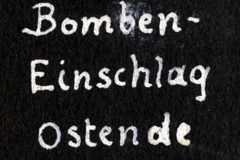 Bomben-
Einschlag
Ostende